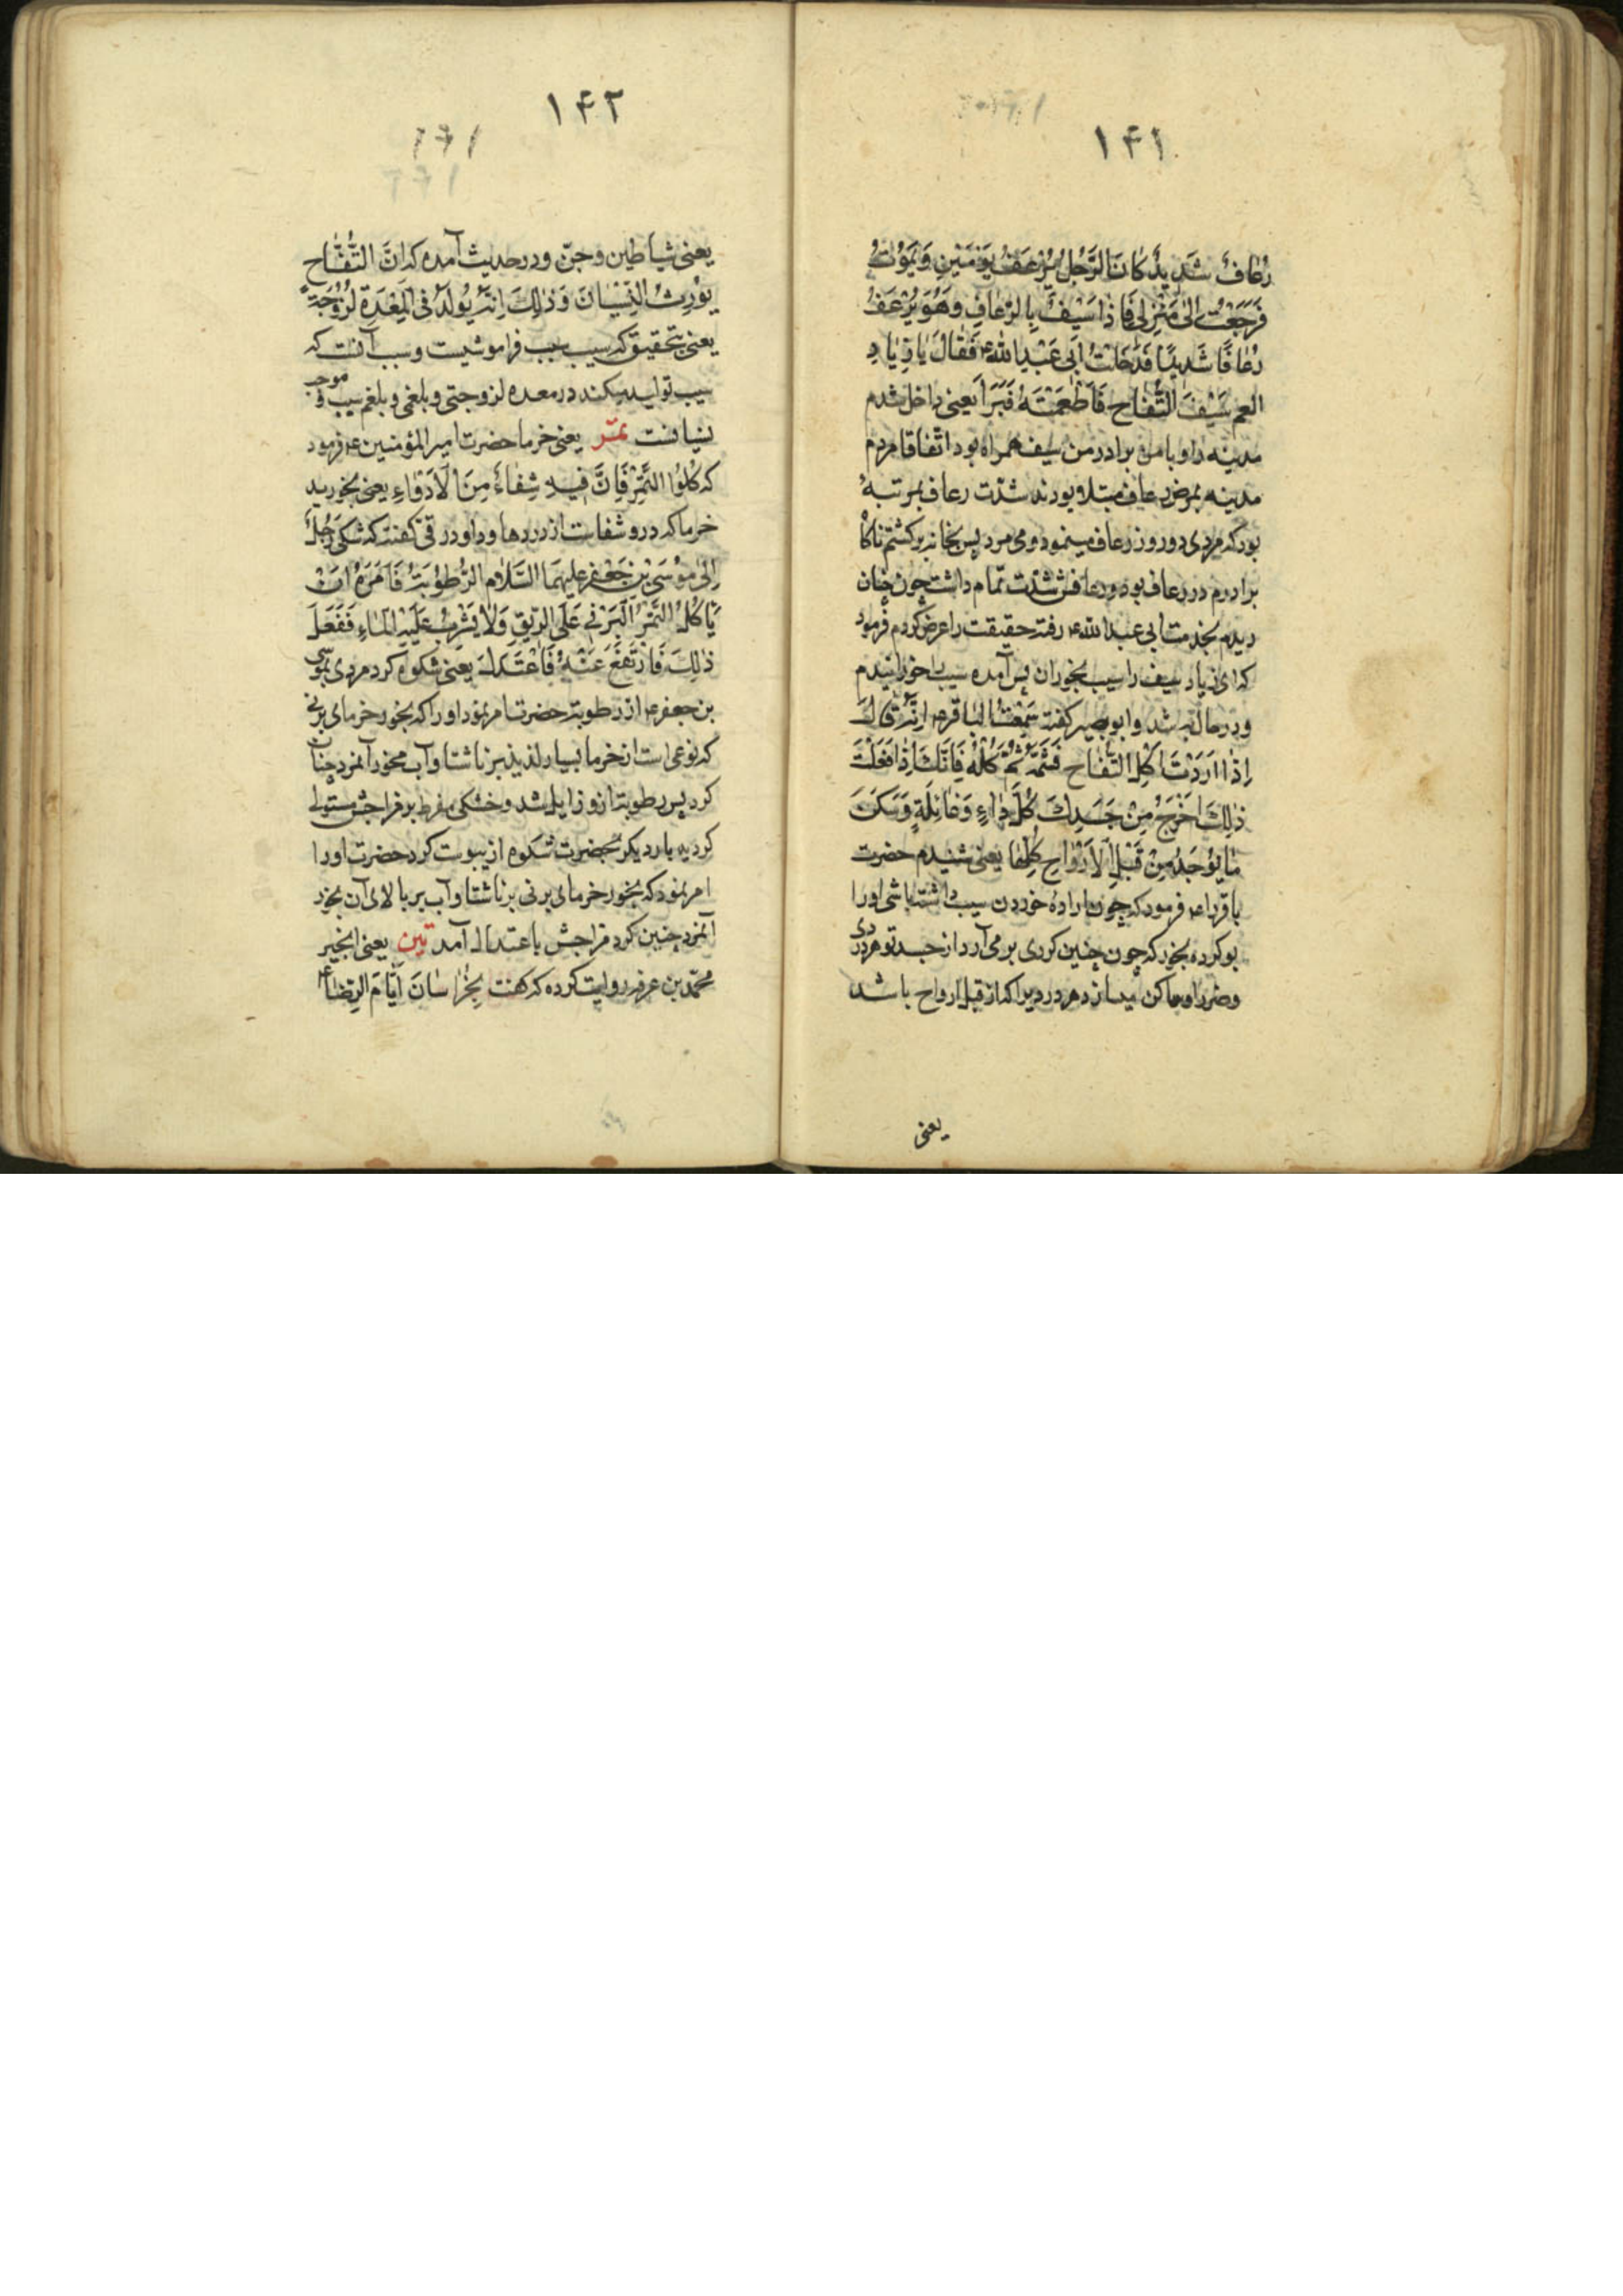 ۱۴۱
رُعَافٌ شَدِيدٌ كَانَ الرَّجُلُ يَرْعَفُ يَوْمَيْنِ وَيَمُوتُ
فَرَجَعْتُ إِلَى مَنْزِلِي فَإِذَا سَيْفٌ بِالرُّعَافِ وَهُوَ يَرْعَفُ
رُعَافًا شَدِيدًا فَدَخَلْتُ أَبِي عَبْدِ اللهِ ع فَقَالَ يَا زِيَادِ
اطعم سَيْفَ التُّفَّاحِ فَأَطْعَمْتَهُ فَبَرَأَ يعنى داخل شدم
مدينه را و با من برادر من سيف همراه بود اتفاقا مردم
مدينه بمرض رعاف مبتلا بودند شدّت رعاف بمرتبهٔ
بود كه مردى دو روز رعاف مينمود و مى مرد پس بخانه بركشتم ناكاه
برادرم در رعاف بود و رعافش شدّت تمام داشت چون چنان
ديدم بخدمت ابى عبد الله ع رفته حقيقت را عرض كردم فرمود
كه اى زياد سيف را سيب بخوران پس آمده سيب باو خورانيدم
و در حال به شد و ابو بصير كفته سَمِعْتُ الْبَاقِرَ ع اِنَّهُ قَالَ
اِذَا اَرَدْتَ اَكْلَ التُّفَّاحِ فَشَمِّهُ ثُمَّ كُلْهُ فَاِنَّكَ اِذَا فَعَلْتَ
ذٰلِكَ اَخْرَجَ مِنْ جَسَدِكَ كُلَّ دَاءٍ وَغَائِلَةٍ وَسَكَنَ
مَا يُوْجَدُ مِنْ قَبْلِ الْاَرْوَاحِ كُلِّهَا يعنى شنيدم حضرت
باقر را ع فرمود كه چون ارادهٔ خوردن سيب داشته باشى او را
بو كرده بخور كه چون چنين كردى بر مى آرد از جسد تو هر دردى
و ضرر او ساكن ميسازد هر دردى را كه از قبل ارواح باشد
يعنى
۱۴۲
يعنى شياطين و جنّ و در حديث آمده كه اِنَّ التُّفَّاح
يُوْرِثُ النِّسْيَانَ وَذٰلِكَ اِنَّهُ يُولَدُ فِى الْمِعْدَةِ لُزُوْجَةً
يعنى بتحقيق كه سيب سبب فراموشيست و سبب آنست كه
سيب توليد ميكند در معده لزوجتى و بلغمى و بلغم سبب و موجب
نسيانست تمر يعنى خرما حضرت امير المؤمنين ع فرمود
كه كُلُوا التَّمْرَ فَاِنَّ فِيهِ شِفَاءً مِنَ الْاَدْوَاءِ يعنى بخوريد
خرما كه درو شفاست از دردها و داود رقى كفته كه شكى رَجُلٌ
اِلىٰ مُوْسَى بْنِ جَعْفَرٍ عليهمَا السَّلَام الرُّطُوْبَةُ فَاَمَرَهُ اَنْ
يَاْكُلُ التَّمْرَ الْبَرْنِى عَلَى الرِّيْقِ وَلَا يَشْرِبُ عَلَيْهِ الْمَاءِ فَفَعَلَ
ذٰلِكَ فَارْتَفَعَ عَنْهُ فَاعْتَدَلَ يعنى شكوه كرد مردى بموسى
بن جعفر ع از رطوبة حضرت امر نمود او را كه بخور خرماى برنى
كه نوعى است از خرما بسيار لذيذ بر ناشتا و آب مخور آنمرد چنان
كرد پس رطوبت ازو زايل شد و خشكى مفرط بر مزاجش مستولى
كرديد بار ديكر بحضرت شكوه از يبوست كرد حضرت او را
امر نمود كه بخور خرماى برنى بر ناشتا و آب بر بالاى آن بخور
آنمرد چنين كرد مزاجش باعتدال آمد تين يعنى انجير
محمّد بن عرفه روايت كرده كه كنت بِخُرَاسَانَ اَيَّامَ الرِّضَا ع